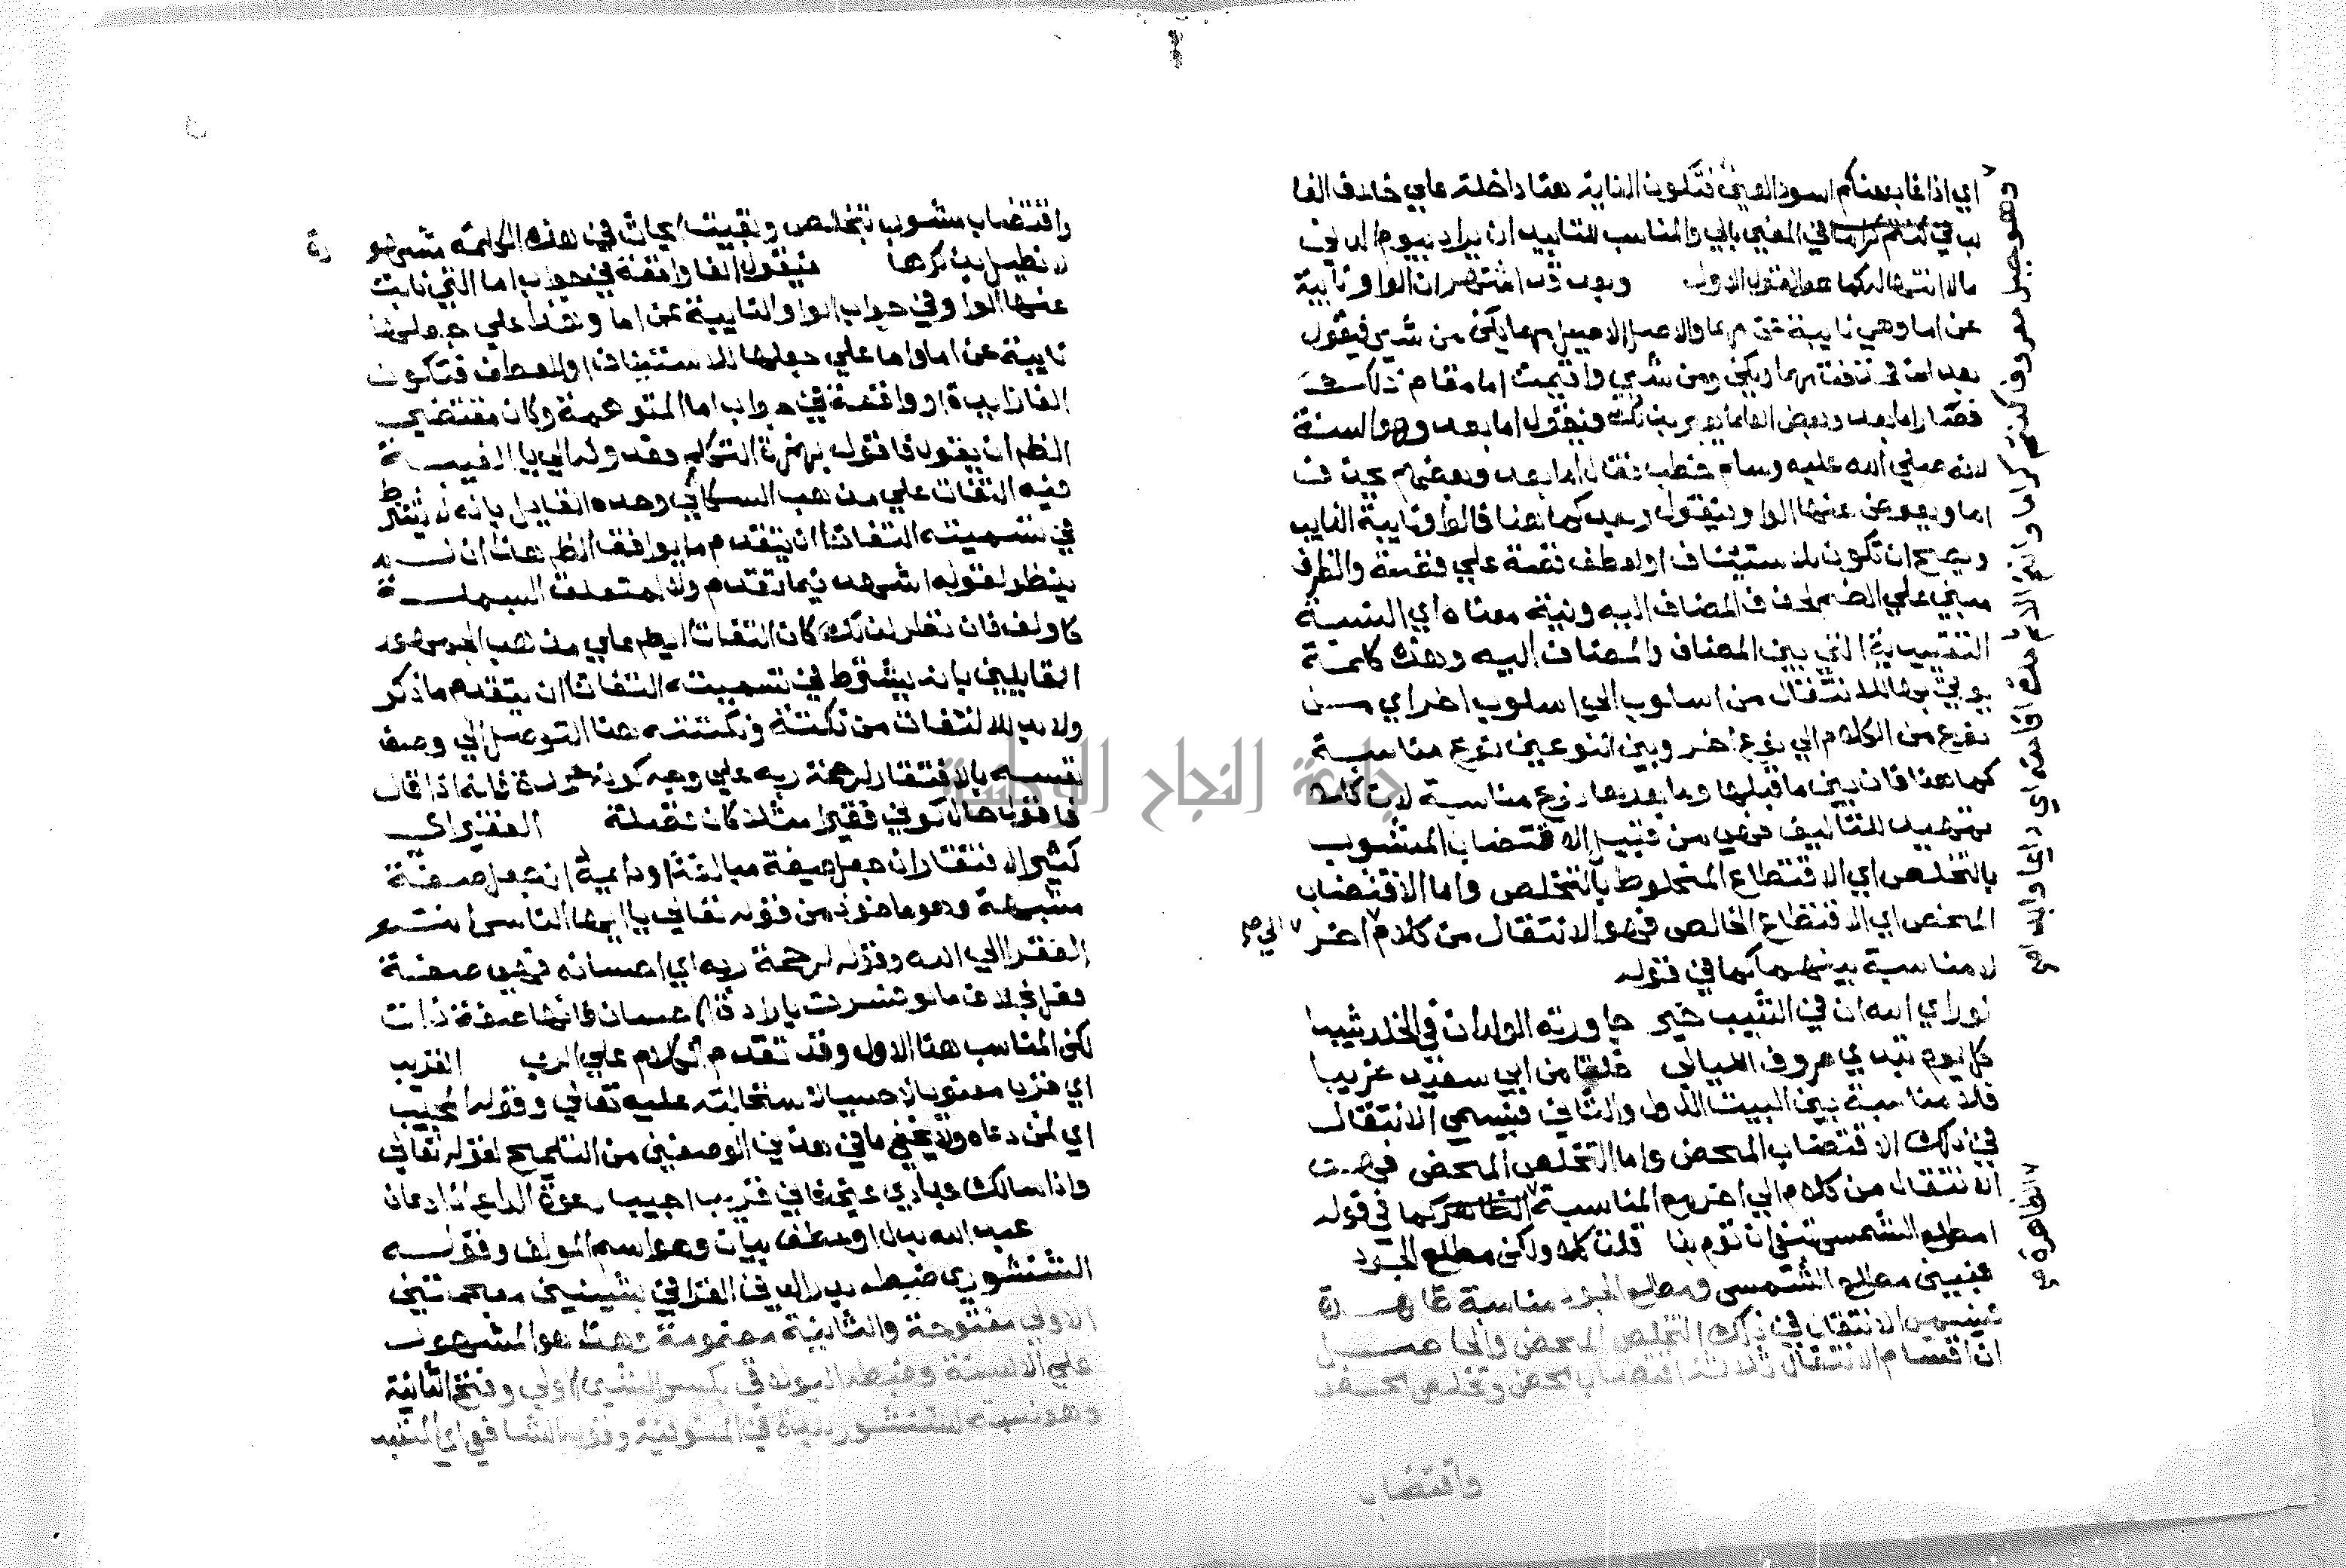 اي اذا غاب عنكم اسود العين فتكون الغاية هنا داخلة علي خلاف الغا
لب في كما في المغني بابي والمناسب للتابيد ان يراد بيوم الدين
مالا انتها له كما هو القول الاول وبعد قد اشتهر ان الواو نايبة
عن اما وهي نايبة عن مهما والاصل الاصيل مهما يكن من شي فيقول
بعد فحذفت مهما ويكن ومن شي واقيمت اما مقام ذلك
فصار اما بعد وبعض العلما يعبر بذلك فيقول اما بعد وهو السنة
لانه صلي الله عليه وسلم خطب فقال اما بعد وبعضهم يحذف
اما ويعوض عنها الواو ويقول وبعد كما هنا فالواو نايبة النايب
ويصح ان تكون للاستيناف او لعطف قصة علي قصة والظرف
مبني علي الضم لحذف المضاف اليه ونية معناه اي النسبة
التقييدية التي بين المضاف والمضاف اليه وهذه كلمة
يوتي بها للانتقال من اسلوب الي اسلوب اخر اي من
نوع من الكلام الي نوع اخر وبين النوعين نوع مناسبة
كما هنا فان بين ما قبلها وما بعدها نوع مناسبة لان كلا
تمهيد للتاليف فهي من قبيل الاقتضاب المشوب
بالتخلص اي الاقتطاع المخلوط بالتخلص واما الاقتضاب
المحض اي الاقتطاع الخالص فهو الانتقال من كلام اخر الي صح
لا مناسبة بينهما كما في قوله
لو راي الله ان في الشيب خير جاورته الولدان في الخلد شيبا
كل يوم تبدي صروف الليالي خلقا من ابي سعيد غريبا
فلا مناسبة بين البيت الاول والثاني فيسمي الانتقال
في ذلك الاقتضاب المحض واما التخلص المحض فهو
الانتقال من كلام الي اخر مع المناسبة الظاهر كما في قوله
امطلع الشمس تبغي ان تؤم بنا فقلت كلا ولكن مطلع الجود
فبين مطلع الشمس ومطلع الجود مناسبة ظاهرة
فيسمي الانتقال في ذلك التخلص المحض والحاصل
ان اقسام الانتقال ثلاثة اقتضاب محض وتخلص محض
واقتضاب
الظاهرة صح
واقتضاب مشوب بتخلص وبقيت ابحاث في هذه الكلمة شهيرة
لا نطيل بذكرها فيقول الفا واقعة في جواب اما التي نابت
عنها الواو وفي جواب الواو النايبة عن اما وهذا علي جعلها
نايبة عن اما واما علي جعلها للاستيناف او للعطف فتكون
الفا زايدة او واقعة في جواب اما المتوهمة وكان مقتضي
الظم ان يقول فاقول بهمزة التكلم فعدوله الي يا الغيبة
فيه التفات علي مذهب السكاكي وحده القايل بانه لا يشترط
في تسميته التفاتا ان يتقدم ما يوافق الظم هذا ان لم
ينظر لقوله اشهد فيما تقدم ولا لمتعلق البسملة
كاولف فان نظر لذلك كان التفاتا ايضا علي مذهب الجمهور
القايلين بانه يشترط في تسميته التفاتا ان يتقدم ما ذكر
ولا بد للالتفات من نكتة ونكتته هنا التوصل الي وصف
نفسه بالافتقار لرحمة ربه علي وجه كونه عمدة فانه اذا قال
فاقول حال كوني فقيرا مثلا كان فضلة الفقير اي
كثير الافتقار ان جعل صيغة مبالغة او دايمه ان جعل صفة
مشبهة وهو ماخوذ من قوله تعالي يا ايها الناس انتم
الفقرا الي الله وقوله لرحمة ربه اي احسانه فهي صفة
فعل بخلاف ما لو فسرت بارادة الاحسان فانها صفة ذات
لكن المناسب هنا الاول وقد تقدم الكلام علي الرب القريب
اي قربا معنويا لا حسيا لاستحالته عليه تعالي وقوله المجيب
اي لمن دعاه ولا يخفي ما في هذين الوصفين من التلميح لقوله تعالي
واذا سالك عبادي عني فاني قريب اجيب دعوة الداع اذا دعان
عبد الله بدل او عطف بيان وهو اسم المولف وقوله
الشنشوري ضبطه بدر الدين القرافي بشينين معجمتين
الاولي مفتوحة والثانية مضمومة وهذا هو المشهور
علي الالسنة وضبطه المولد في بكسر الشين الاولي وفتح الثانية
وهو نسبة لشنشور بلدة في المنوفية وقوله الشافعي اي المتعبد